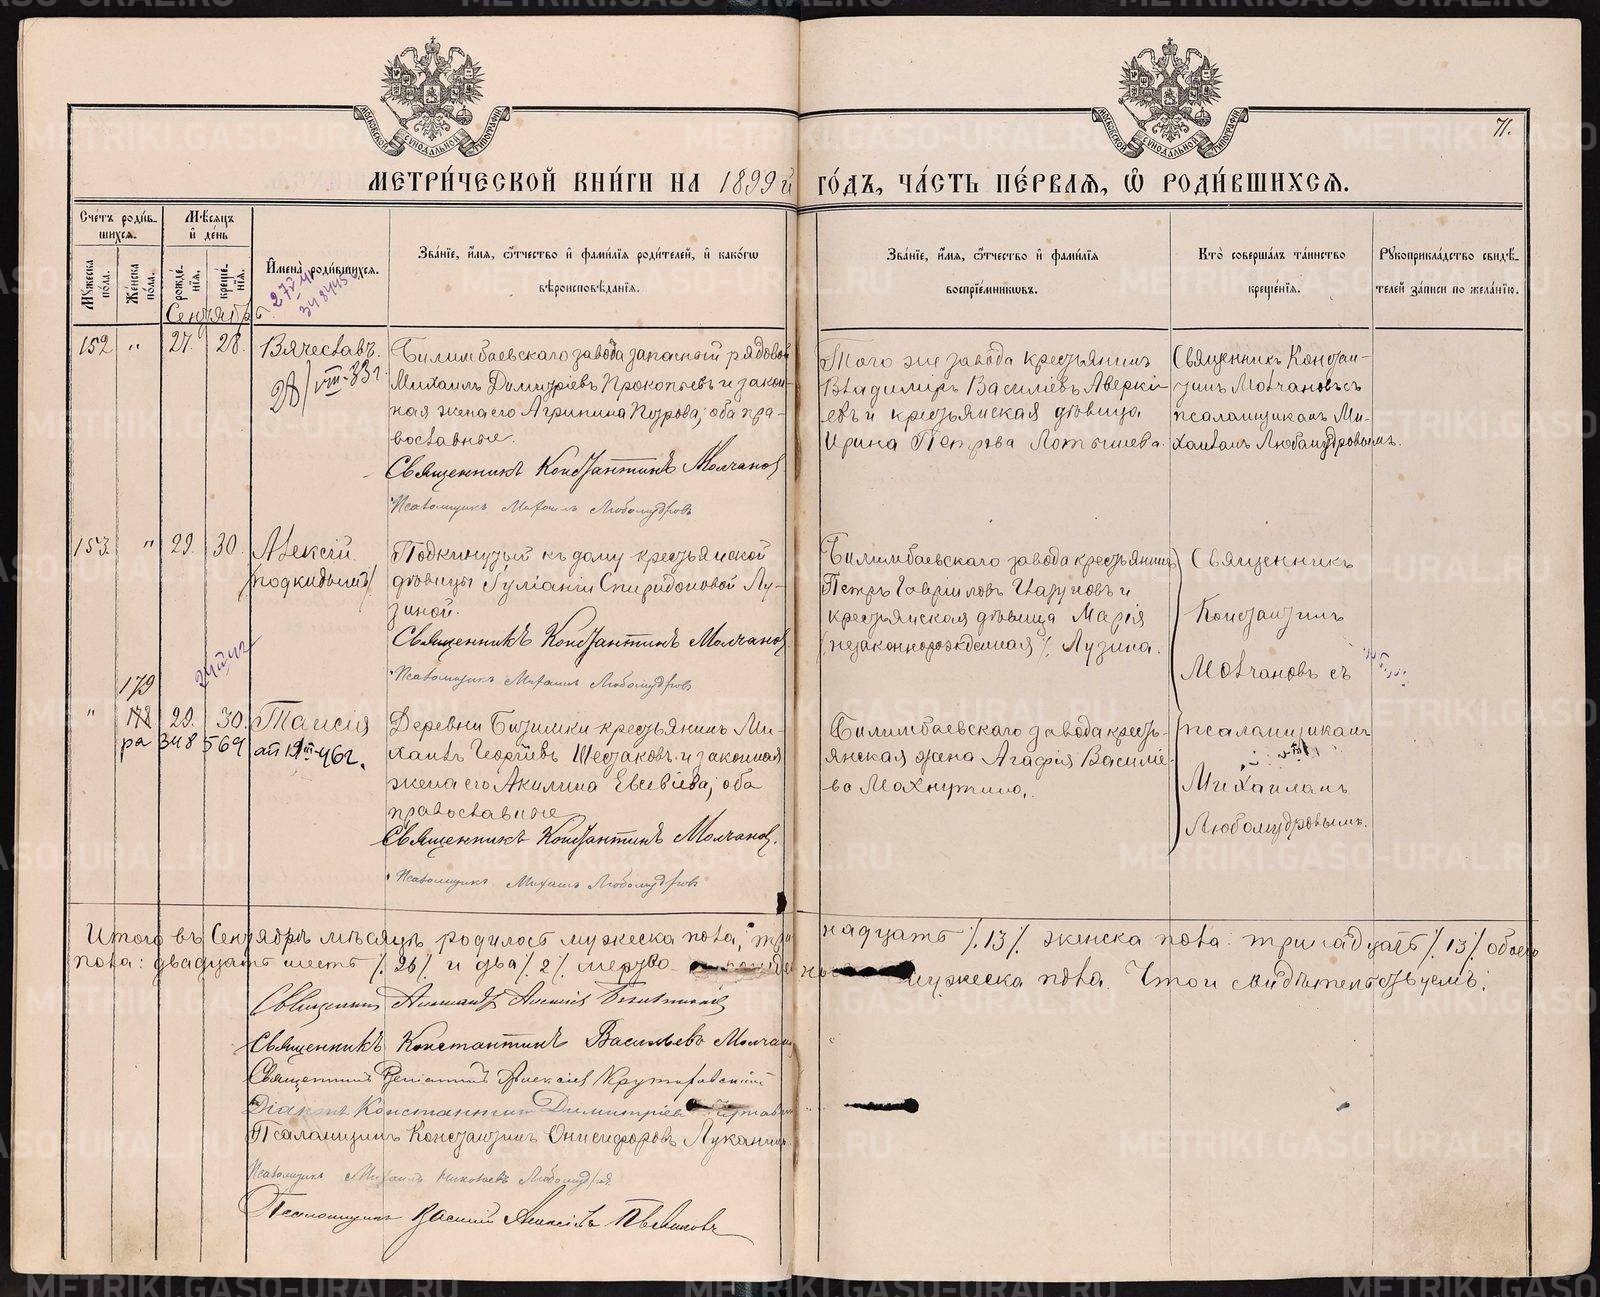 МОСКОВСКОЙ СѴНОДАЛЬНОЙ ТИПОГРАФІИ
МОСКОВСКОЙ СѴНОДАЛЬНОЙ ТИПОГРАФІИ
71.
МЕТРИ́ЧЕСКОЙ КНИ́ГИ НА 1899й ГО́ДЪ, ЧА́СТЬ ПЕ́РВАЯ, Ѿ РОДИ́ВШИХСЯ.
Сче́тъ роди́вшихся.
Мѣ́сяцъ и҆ де́нь
Му́жеска по́ла.
Же́нска по́ла.
рожде́нїѧ.
креще́нїѧ.
И҆мена̀ роди́вшихся.
Зва́нїе, и҆́мѧ, ѻ҆́тчество и҆ фами́лїѧ роди́телей, и҆ како́гѡ
вѣроисповѣ́данїѧ.
Зва́нїе, и҆́мѧ, ѻ҆́тчество и҆ фами́лїѧ
воспрїе́мниковъ.
Кто̀ соверша́лъ та́инство
креще́нїѧ.
Рꙋкоприкла́дство свидѣ́телей за́писи по жела́нїю.
Сентябрь
152 " 27. 28. Вячеславъ.
28/VIII-33г.
Билимбаевскаго завода запасный рядовой
Михаилъ Димитріевъ Прокопьевъ и закон-
ная жена его Агрипина Петрова; оба пра-
вославные.
Священникъ Константинъ Молчановъ.
Псаломщикъ Михаилъ Любомудровъ
Того же завода крестьянинъ
Владимиръ Василіевъ Аверкі-
евъ и крестьянская дѣвица
Ирина Петрова Лотышева.
Священникъ Констан-
тинъ Молчановъ съ
псаломщикомъ Ми-
хаиломъ Любомудровымъ.
153. " 29. 30. Алексій
/подкидышъ/
Подкинутый къ дому крестьянской
дѣвицы Іуліаніи Спиридоновой Лу-
зиной.
Священникъ Константинъ Молчановъ.
Псаломщикъ Михаилъ Любомудровъ
Билимбаевскаго завода крестьянинъ
Петръ Гавріиловъ Царуновъ и
крестьянская дѣвица Марія
/незаконнорожденная/ Лузина.
Священникъ
Константинъ
Молчановъ съ
псаломщикомъ
Михаиломъ
Любомудровымъ.
179
" 178 29. 30. Таисія
ра 348 569
Деревни Битимки крестьянинъ Ми-
хаилъ Георгіевъ Шестаковъ и законная
жена его Акилина Евсевіева; оба
православные
Священникъ Константинъ Молчановъ.
Псаломщикъ Михаилъ Любомудровъ
Билимбаевскаго завода кресть-
янская жена Агафія Василіе-
ва Махнутина.
Итого въ Сентябрѣ мѣсяцѣ родилось мужеска пола: тринадцать /.13/. женска пола: тринадцать /.13/. обоего
пола: двадцать шесть /.26/. и два /.2/. мертво мужеска пола. Что и свидѣтельствуемъ:
Священникъ
Священникъ Константинъ Васильевъ Молчановъ
Священникъ Алексіевъ
Діаконъ Константинъ Димитріевъ
Псаломщикъ Константинъ Онисифоровъ Луканинъ.
Псаломщикъ Михаилъ Николаевъ Любомудровъ
Псаломщикъ Василій Алексіевъ